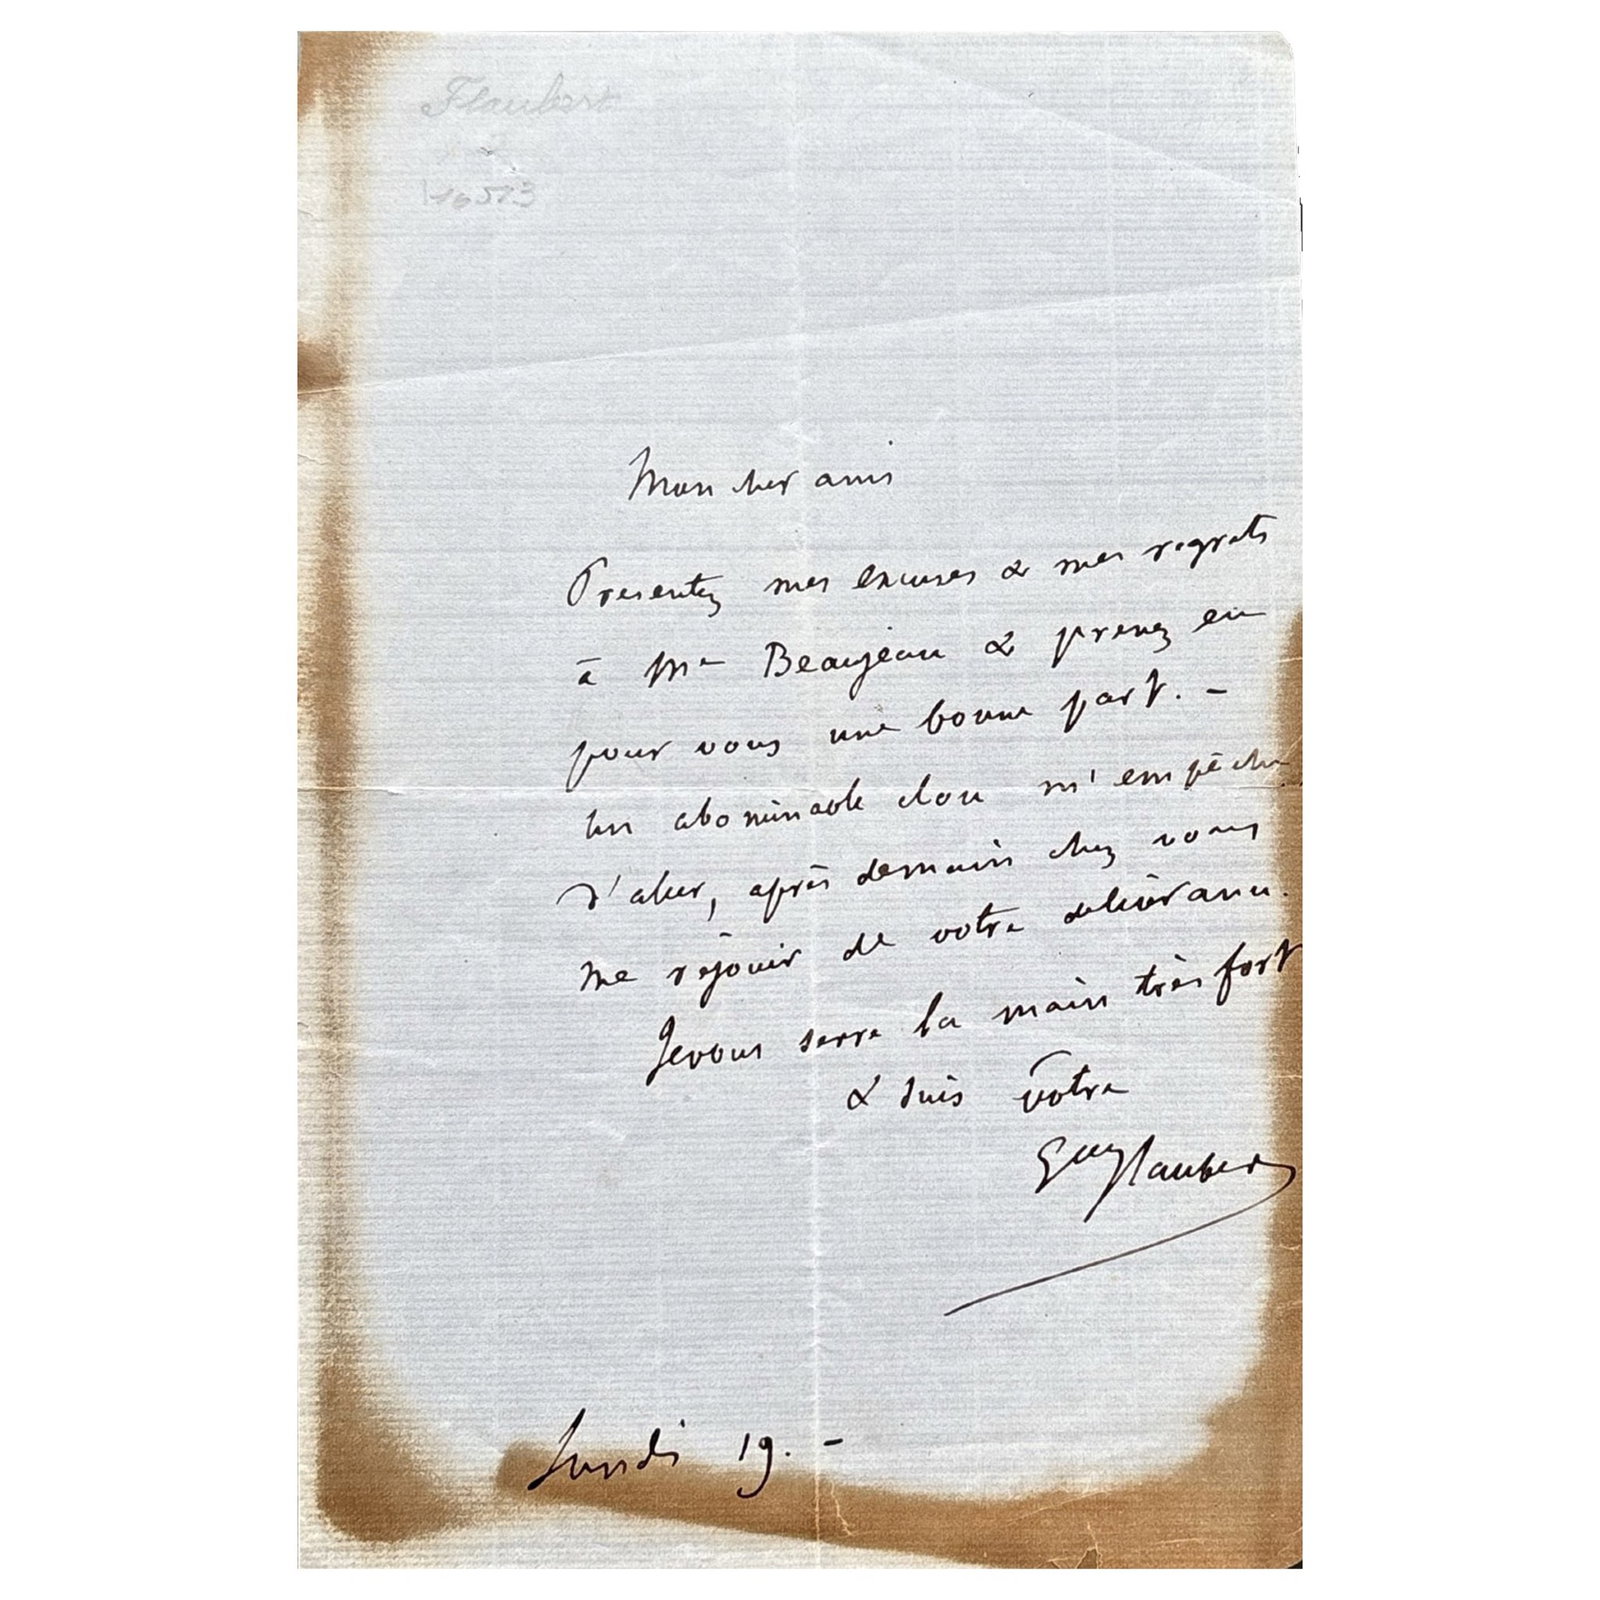 Flaubert
16513
Mon cher ami
Presentez mes excuses & mes regrets
à Me Beaujean & prenez en
pour vous une bonne part. –
Un abominable clou m'empêche
d'aller, après demain chez vous
me réjouir de votre délivrance.
Je vous serre la main très fort
& suis votre
Gve Flaubert
Lundi 19. –